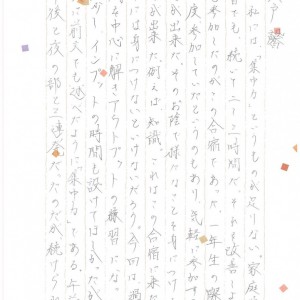 戸 春
私には、「集中力」というものが足りない。家庭
習でも、続いて二～三時間だ。それを改善し
参加したのがこの合宿であった。一年生の
度参加していたというのもあり、気軽に参加す
が出来た。そのお陰で様々なことを身につけ
には身につけないといけないだろう。今回は過
が出来た。例えば知識。これはこの合宿に来た
を中心に解きアウトプットの練習にな
インプットの時間も設けてほしか
前文でも述べたように「集中力」である。午
後と夜の部と二連発だったのが続けら